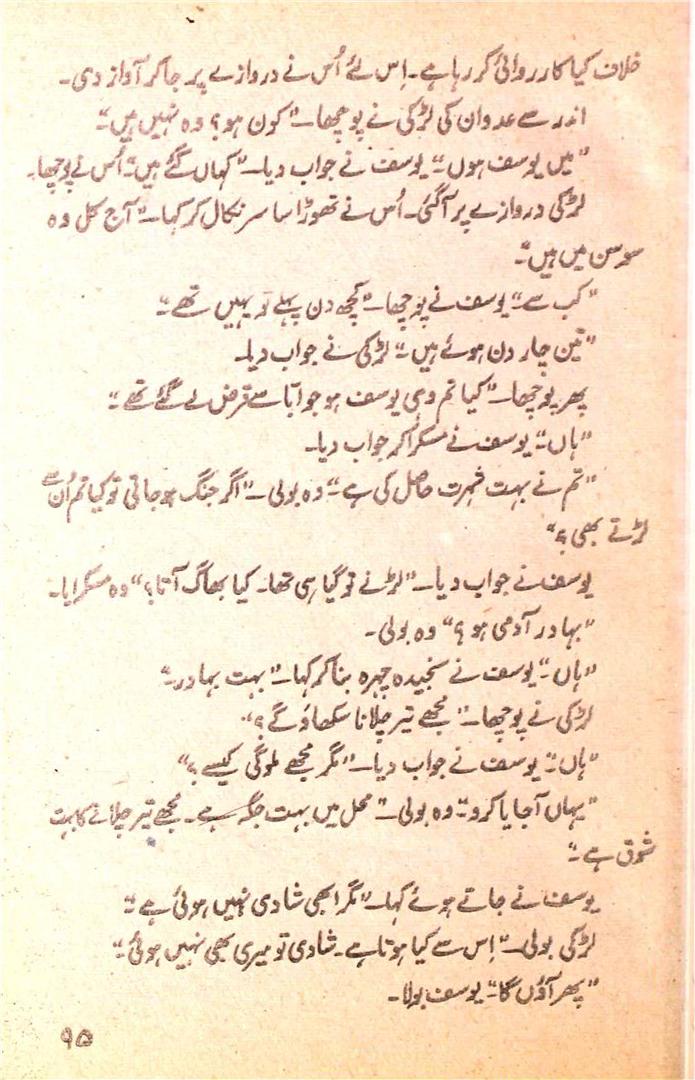 خلاف کیا کارروائی کر رہا ہے۔ اِس لئے اُس نے دروازے پر جا کر آواز دی۔
اندر سے عدوان کی لڑکی نے پوچھا۔ "کون ہو؟ وہ نہیں ہیں۔"
"میں یوسف ہوں۔" یوسف نے جواب دیا۔ "کہاں گئے ہیں۔" اُس نے پوچھا۔
لڑکی دروازے پر آگئی۔ اُس نے تھوڑا سا سر نکال کر کہا۔ "آج کل وہ
سوسن میں ہیں۔"
"کب سے۔" یوسف نے پوچھا۔ "کچھ دن پہلے تو یہیں تھے۔"
"تین چار دن ہوئے ہیں۔" لڑکی نے جواب دیا۔
پھر پوچھا۔ "کیا تم وہی یوسف ہو جو ابّا سے قرض لے گئے تھے۔"
"ہاں۔" یوسف نے مسکرا کر جواب دیا۔
"تم نے بہت شہرت حاصل کی ہے۔" وہ بولی۔ "اگر جنگ ہو جاتی تو کیا تم اُن سے
لڑتے بھی؟"
یوسف نے جواب دیا۔ "لڑنے تو گیا ہی تھا۔ کیا بھاگ آتا؟" وہ مسکرایا۔
"بہادر آدمی ہو؟" وہ بولی۔
"ہاں۔" یوسف نے سنجیدہ چہرہ بنا کر کہا۔ "بہت بہادر۔"
لڑکی نے پوچھا۔ "مجھے تیر چلانا سکھاؤ گے؟"
"ہاں۔" یوسف نے جواب دیا۔ "مگر مجھے ملو گی کیسے؟"
"یہاں آجایا کرو۔" وہ بولی۔ "محل میں بہت جگہ ہے۔ مجھے تیر چلانے کا بہت
شوق ہے۔"
یوسف نے جاتے ہوئے کہا۔ "مگر ابھی شادی نہیں ہوئی ہے۔"
لڑکی بولی۔ "اِس سے کیا ہوتا ہے۔ شادی تو میری بھی نہیں ہوئی۔"
"پھر آؤں گا۔" یوسف بولا۔
۹۵